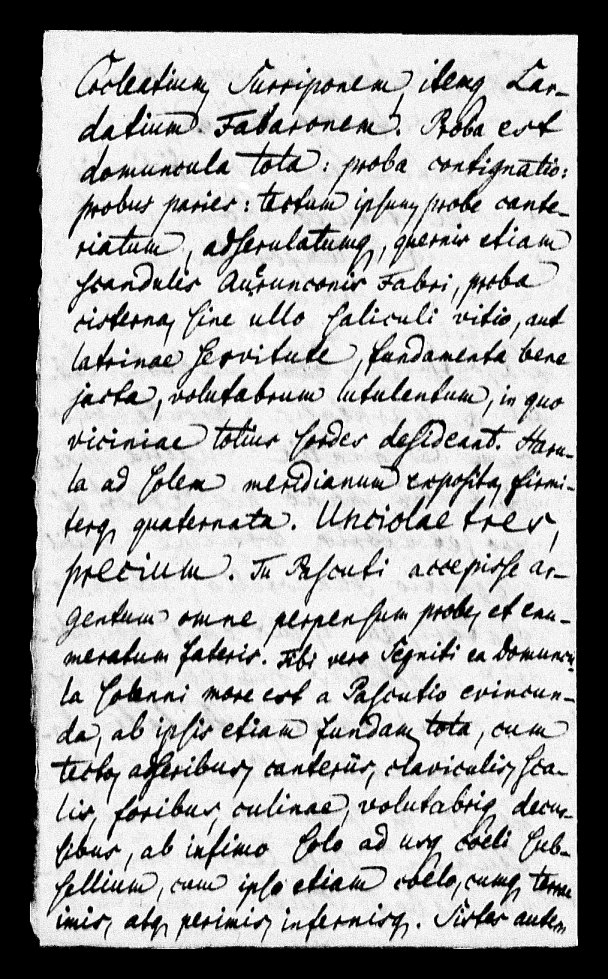 Cocleatium Surriponem, itemq Lar-
datium Fabaronem. Proba est
domuncula tota: proba contignatio:
probus paries: tectum ipsum probe cante-
riatum, adserulatumq, quernis etiam
scandulis Aurunconis Fabri, proba
cisterna, sine ullo saliculi vitio, aut
latrinae servitute, fundamenta bene
jacta, volutabrum lutulentum, in quo
viciniae totius sordes desideant. Haru-
la ad solem meridianum exposita, firmi-
terq quaternata. Unciolae tres,
precium. Tu Pascuti accepisse ar-
gentum omne perpensum probe, et enu-
meratum fateris. Tibi vero Segniti ea domuncu-
la solenni more est a Pascutio evincun-
da, ab ipsis etiam fundam tota, cum
tecto, adseribus, canteriis, claviculis, sca-
lis, foribus, culinae, volutabriq decur-
sibus, ab infimo solo ad usq coeli sub-
sellium, cum ipso etiam coelo, cumq terrae
imis, atq perimis, infernisq. Sistes autem